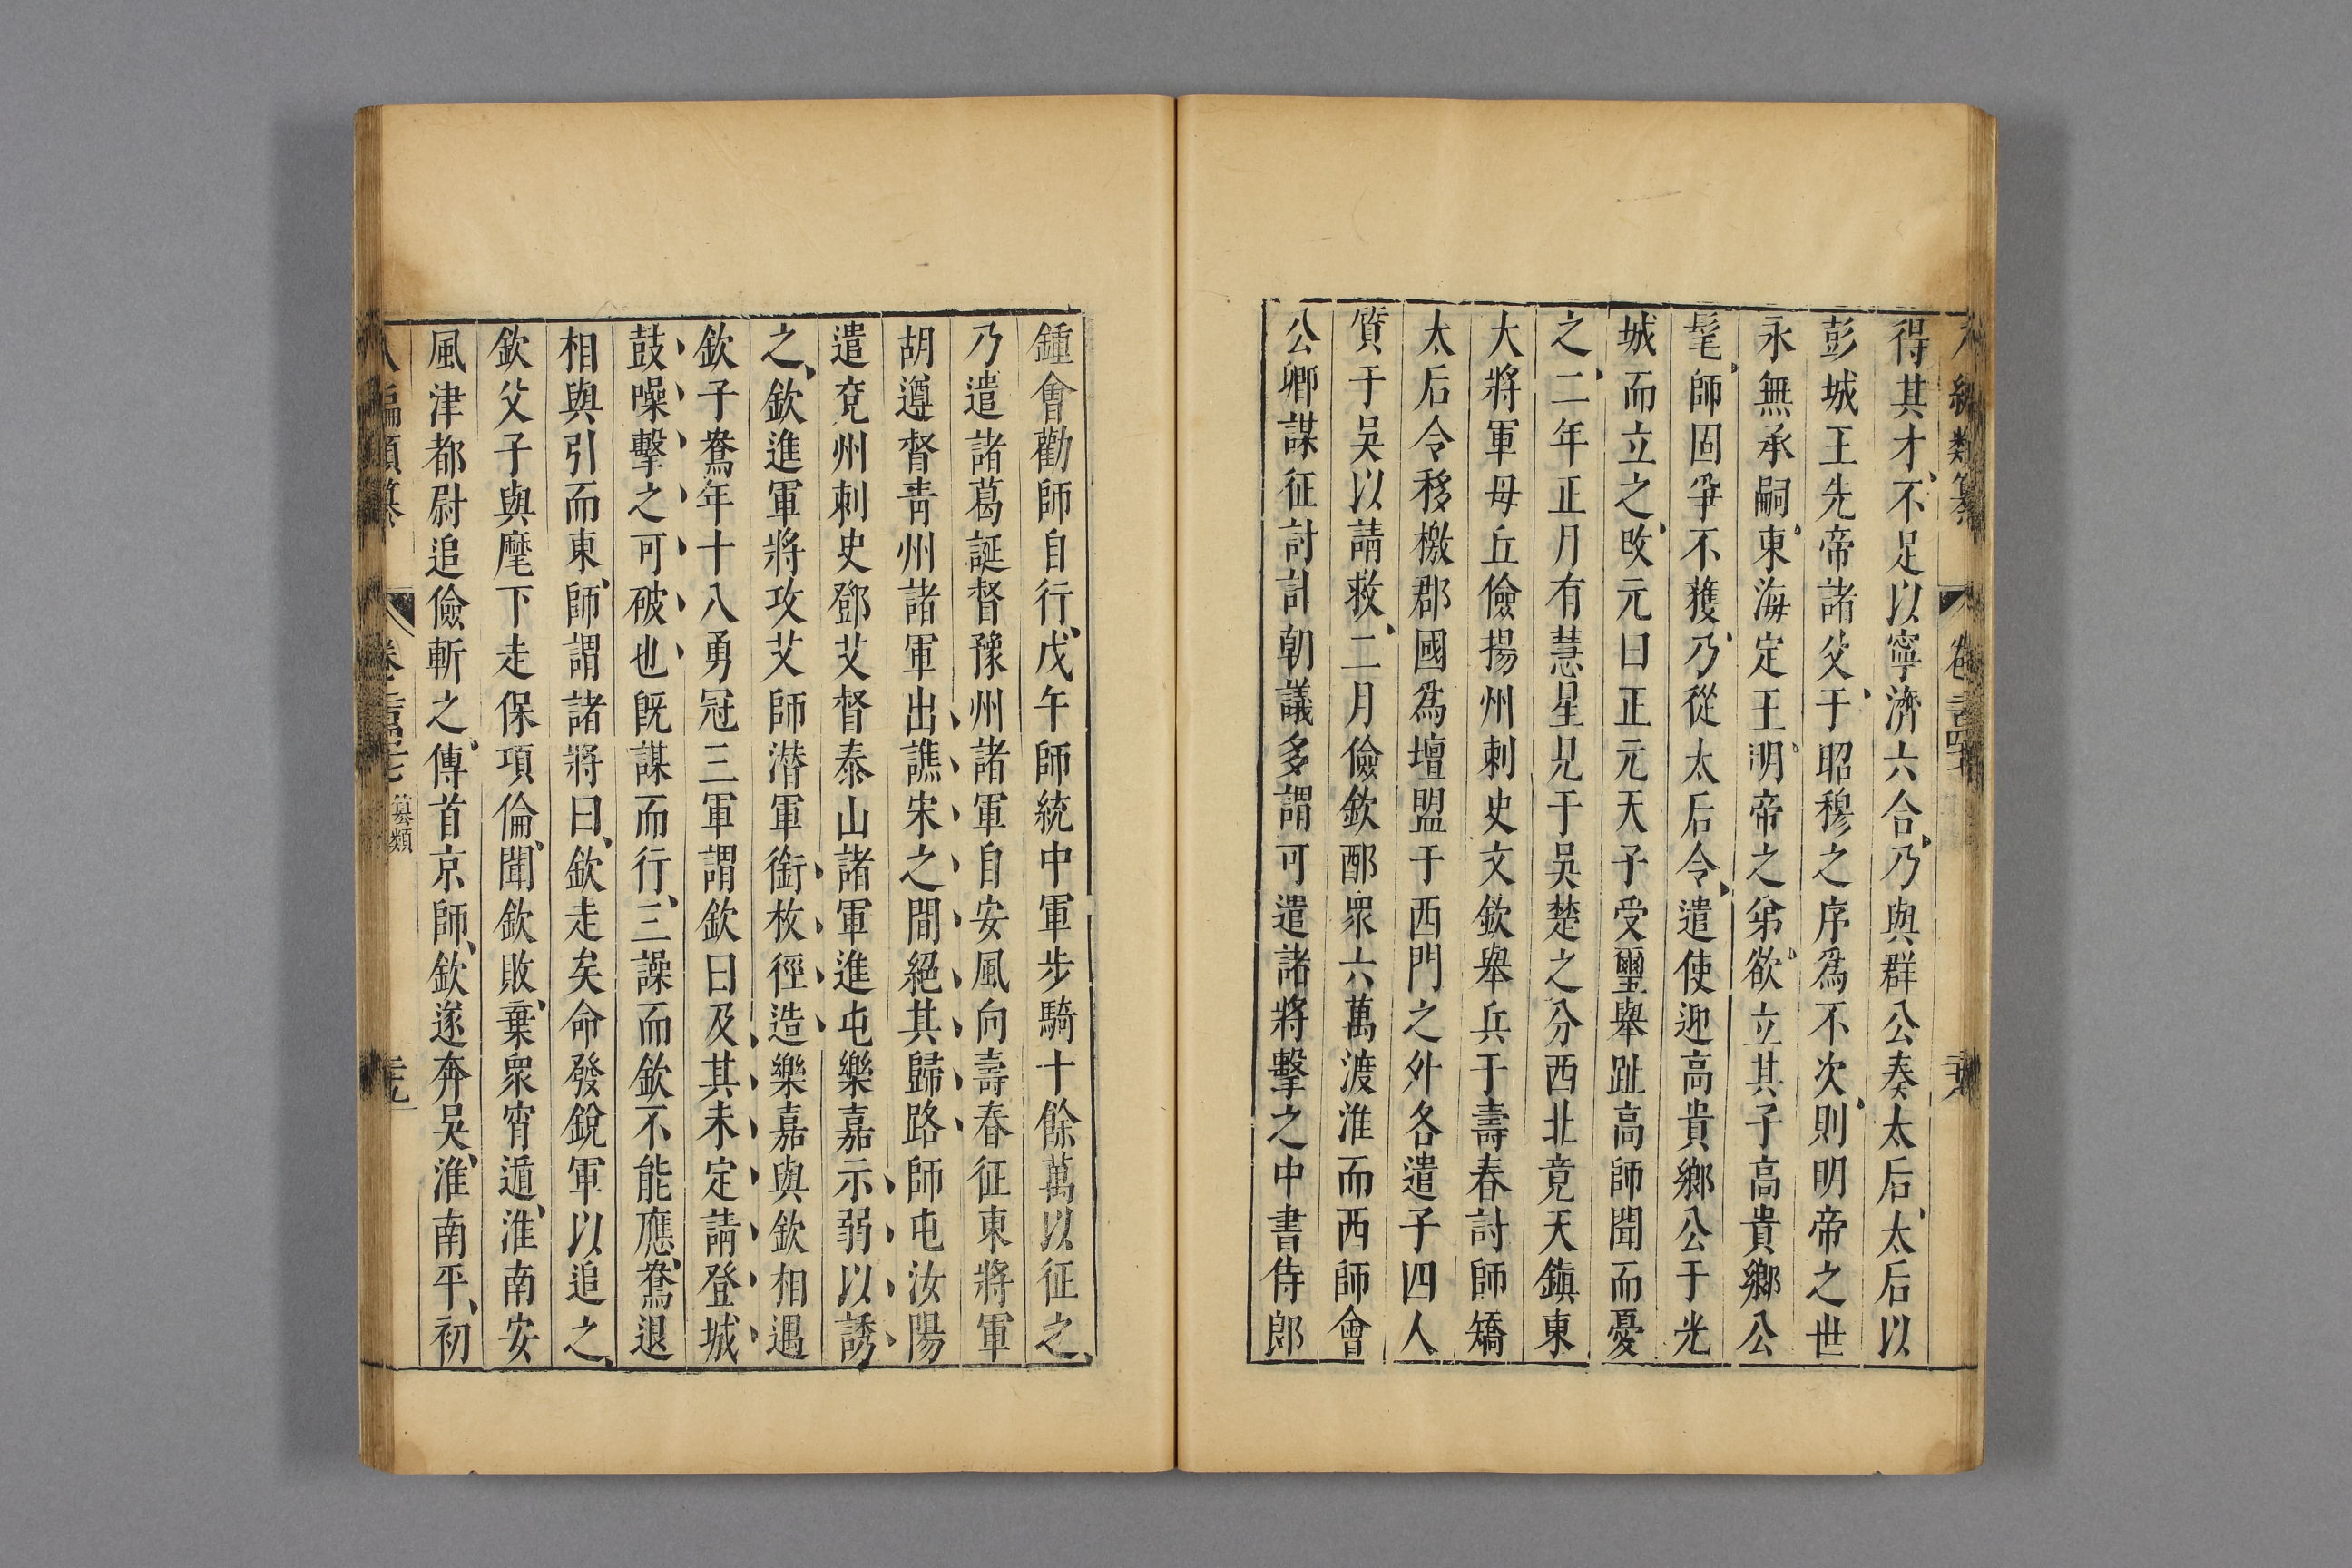 得其才不足以寧濟六合乃與群公奏太后太后以
彭城王先帝諸父于昭穆之序爲不次則明帝之世
永無承嗣東海定王明帝之弟欲立其子高貴鄉公
髦師固爭不獲乃從太后令遣使迎高貴鄉公于光
城而立之改元曰正元天子受璽舉趾高師聞而憂
之二年正月有慧星見于吳楚之分西北竟天鎮東
大將軍毋丘儉揚州刺史文欽舉兵于壽春討師矯
太后令移檄郡國爲壇盟于西門之外各遣子四人
質于吳以請救二月儉欽郙衆六萬渡淮而西師會
公卿謀征討計朝議多謂可遣諸將擊之中書侍郎
鍾會勸師自行戊午師統中軍步騎十餘萬以征之
乃遣諸葛誕督豫州諸軍自安風向壽春征東將軍
胡遵督青州諸軍出譙宋之間絕其歸路師屯汝陽
遣兗州刺史鄧艾督泰山諸軍進屯樂嘉示弱以誘
之欽進軍將攻艾師潛軍銜枚徑造樂嘉與欽相遇
欽子鴦年十八勇冠三軍謂欽曰及其未定請登城
鼓噪擊之可破也既謀而行三譟而欽不能應鴦退
相與引而東師謂諸將曰欽走矣命發銳軍以追之
欽父子與麾下走保項倫聞欽敗棄衆宵遁淮南安
風津都尉追儉斬之傳首京師欽遂奔吳淮南平初
編類纂
纂類